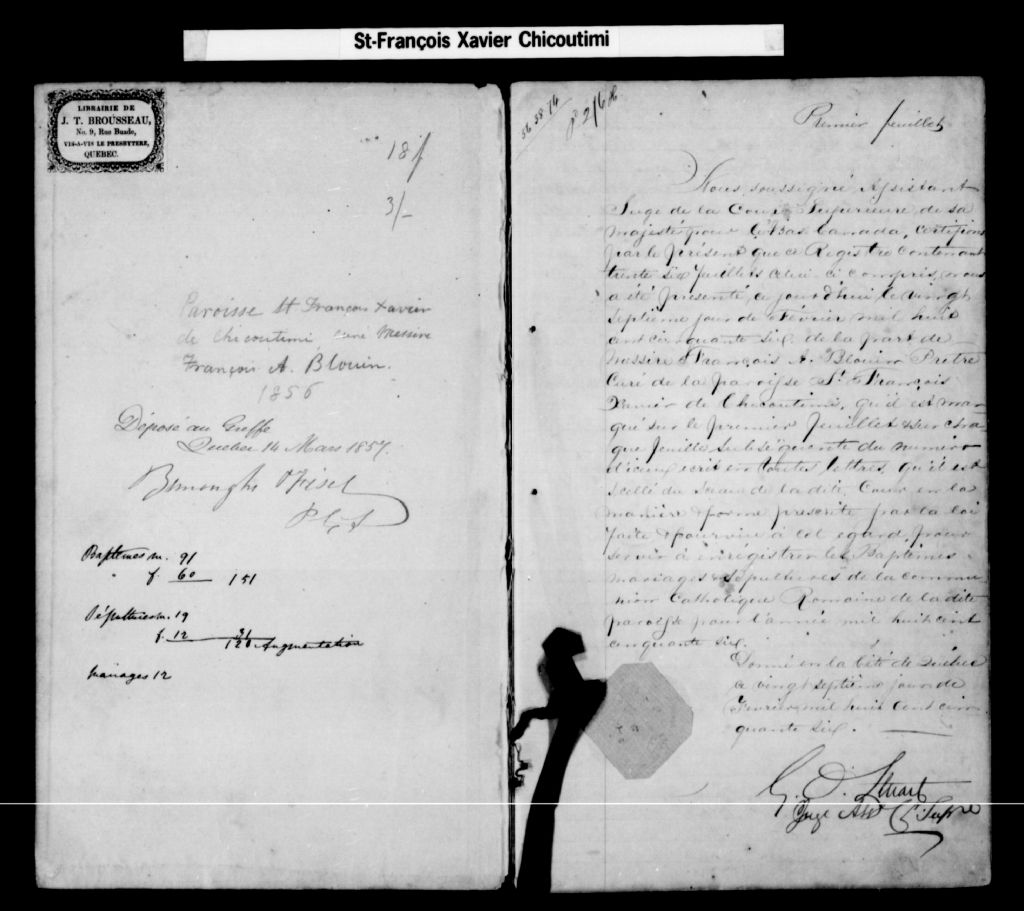 St-François Xavier Chicoutimi
LIBRAIRIE DE
J. T. BROUSSEAU,
No. 9, Rue Buade,
VIS-A-VIS LE PRESBYTERE,
QUEBEC.
18/
3/-
Paroisse St François Xavier
de Chicoutimi, curé Messire
François A. Blouin.
1856
Déposé au Greffe
Quebec 14 Mars 1857.
Burroughs & Fiset
P C S
Baptêmes m. 91
f. 60 151
Sépultures m. 19
f. 12 31
120 Augmentation
Mariages 12
56.58.76
Premier feuillet
Nous, soussigné, Assistant
Juge de la Cour Supérieure de sa
Majesté pour le Bas Canada, certifions
par le présent que ce Registre contenant
trente six feuillets celui-ci compris, nous
a été présenté, ce jourd'hui, le vingt
septième jour de Février mil huit
cent cinquante six, de la part de
Messire François A. Blouin Prêtre
Curé de la paroisse St François
Xavier de Chicoutimi, qu'il est mar-
qué sur le premier feuillet & sur cha-
que feuille subséquente du numéro
d'iceux écrit en toutes lettres, qu'il est
scellé du sceau de la dite Cour en la
manière & forme prescrite par la loi
faite & pourvue à cet egard, pour
servir à enrégistrer les Baptêmes
mariages & sépultures de la commu-
nion Catholique Romaine de la dite
paroisse pour l'année mil huit cent
cinquante six.
Donné en la Cité de Québec
ce vingt septième jour de
Février mil huit cent cin-
quante six.
G. O. Stuart
Juge Asst C. Supre